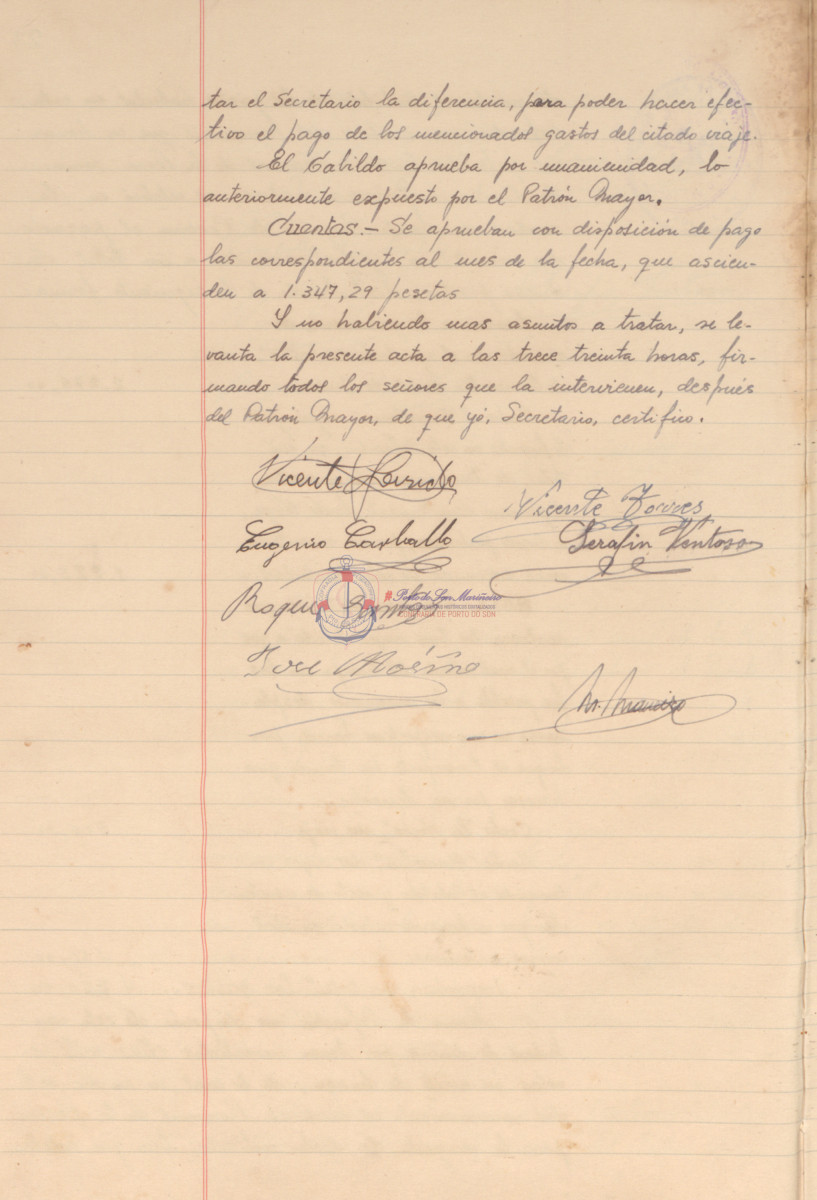 tar el Secretario la diferencia, para poder hacer efec-
tivo el pago de los mencionados gastos del citado viaje.
El Cabildo aprueba por unanimidad, lo
anteriormente expuesto por el Patrón Mayor.
Cuentas.- Se aprueban con disposición de pago
las correspondientes al mes de la fecha, que ascien-
den a 1.347,29 pesetas
Y no habiendo mas asuntos a tratar, se le-
vanta la presente acta a las trece treinta horas, fir-
mando todos los señores que la intervienen, después
del Patrón Mayor, de que yó, Secretario, certifico.
Vicente
Vicente Torres
Eugenio Carballo
Serafin Ventoso
Roque
Porto do Son Mariñeiro
CONFRARÍA DE PORTO DO SON
Jose
M.